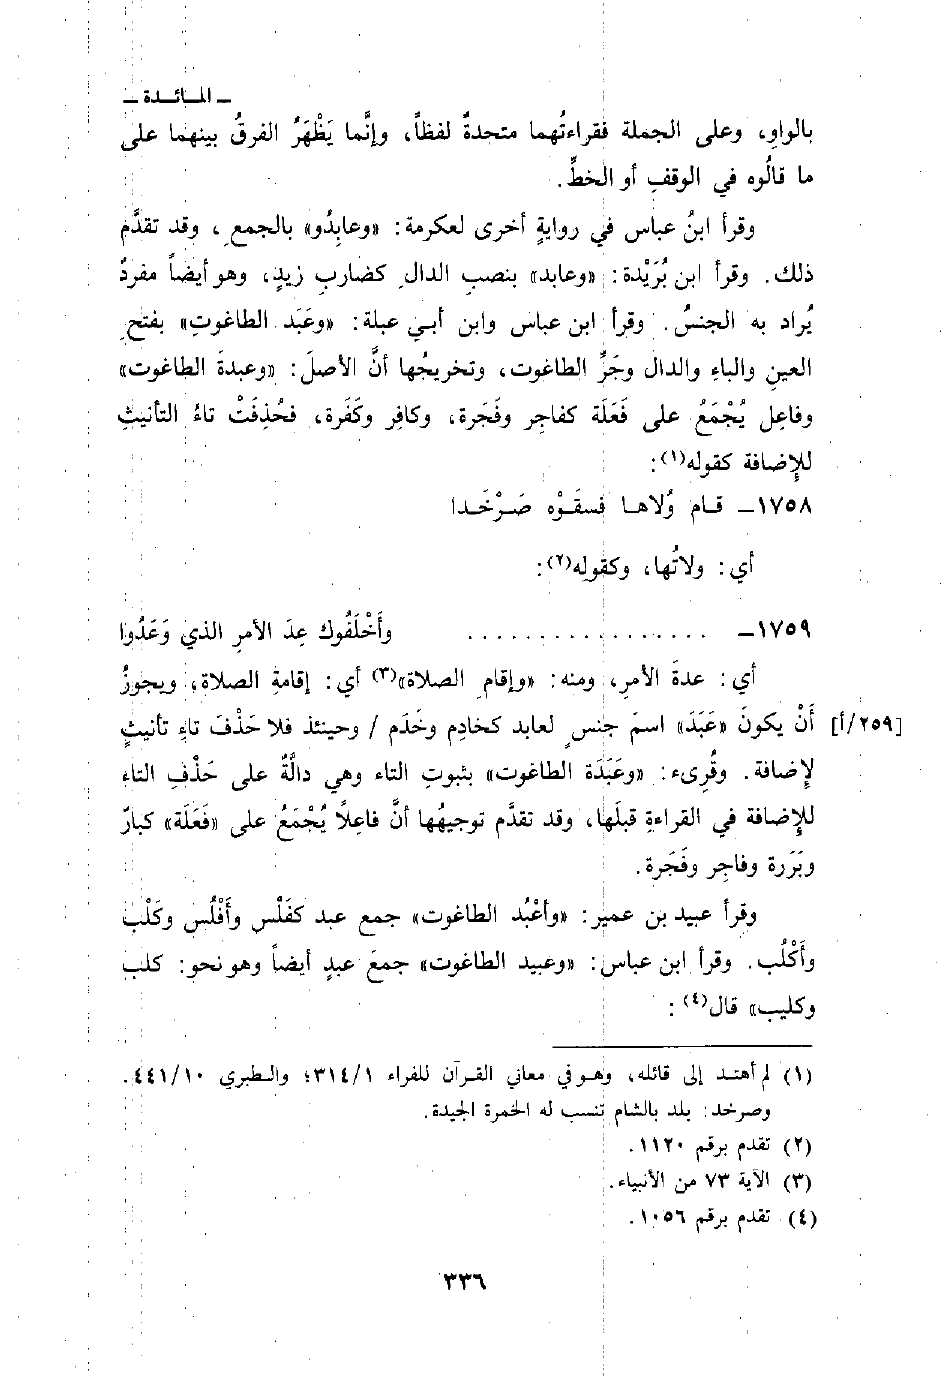 ـ المـائـدة ـ
بالواوِ، وعلى الجملة فقراءتُهما متحدةٌ لفظاً، وإنَّما يَظْهَرُ الفرقُ بينهما على
ما قالُوه في الوقفِ أو الخطِّ.
وقرأ ابنُ عباس في روايةٍ أخرى لعكرمة: «وعابِدُو» بالجمعِ، وقد تقدَّم
ذلك. وقرأ ابن بُرَيْدة: «وعابد» بنصبِ الدالِ كضاربِ زيدٍ، وهو أيضاً مفردٌ
يُراد به الجنسُ. وقرأ ابن عباس وابن أبي عبلة: «وعَبَد الطاغوتِ» بفتحِ
العينِ والباءِ والدال وجَرِّ الطاغوت، وتخريجُها أنَّ الأصلَ: «وعبدةَ الطاغوت»
وفاعِل يُجْمَعُ على فَعَلَة كفاجِر وفَجَرة، وكافِر وكَفَرة، فحُذِفَتْ تاءُ التأنيثِ
للإِضافة كقوله(١):
١٧٥٨ـ قـام وُلاهـا فسقَـوْه صَـرْخَـدا
أي: ولاتُها، وكقولِه(٢):
١٧٥٩ـ . . . . . . . . . . . . . . . . . وأَخْلَفُوك عِدَ الأمرِ الذي وَعَدُوا
أي: عدةَ الأمرِ، ومنه: «وإقامِ الصلاة»(٣) أي: إقامةِ الصلاة، ويجوزُ
[٢٥٩/أ] أَنْ يكونَ «عَبَدَ» اسمَ جنسٍ لعابد كخادِم وخَدَم / وحينئذ فلا حَذْفَ تاءِ تأنيثٍ
لإِضافة. وقُرِىء: «وعَبَدَة الطاغوت» بثبوتِ التاء وهي دالَّةٌ على حَذْفِ التاء
للإِضافة في القراءةِ قبلَها، وقد تقدَّم توجيهُها أنَّ فاعِلاً يُجْمَعُ على «فَعَلَة» كبارّ
وبَرَرة وفاجِر وفَجَرة.
وقرأ عبيد بن عمير: «وأعْبُد الطاغوت» جمع عبد كفَلْس وأَفْلُس وكَلْب
وأَكْلُب. وقرأ ابن عباس: «وعبيد الطاغوت» جمعَ عبدٍ أيضاً وهو نحو: كلب
وكليب» قال(٤):
(١) لم أهتـد إلى قائله، وهـو في معاني القـرآن للفراء ٣١٤/١؛ والـطبري ٤٤١/١٠.
وصرخد: بلد بالشام تنسب له الخمرة الجيدة.
(٢) تقدم برقم ١١٢٠.
(٣) الآية ٧٣ من الأنبياء.
(٤) تقدم برقم ١٠٥٦.
٣٣٦